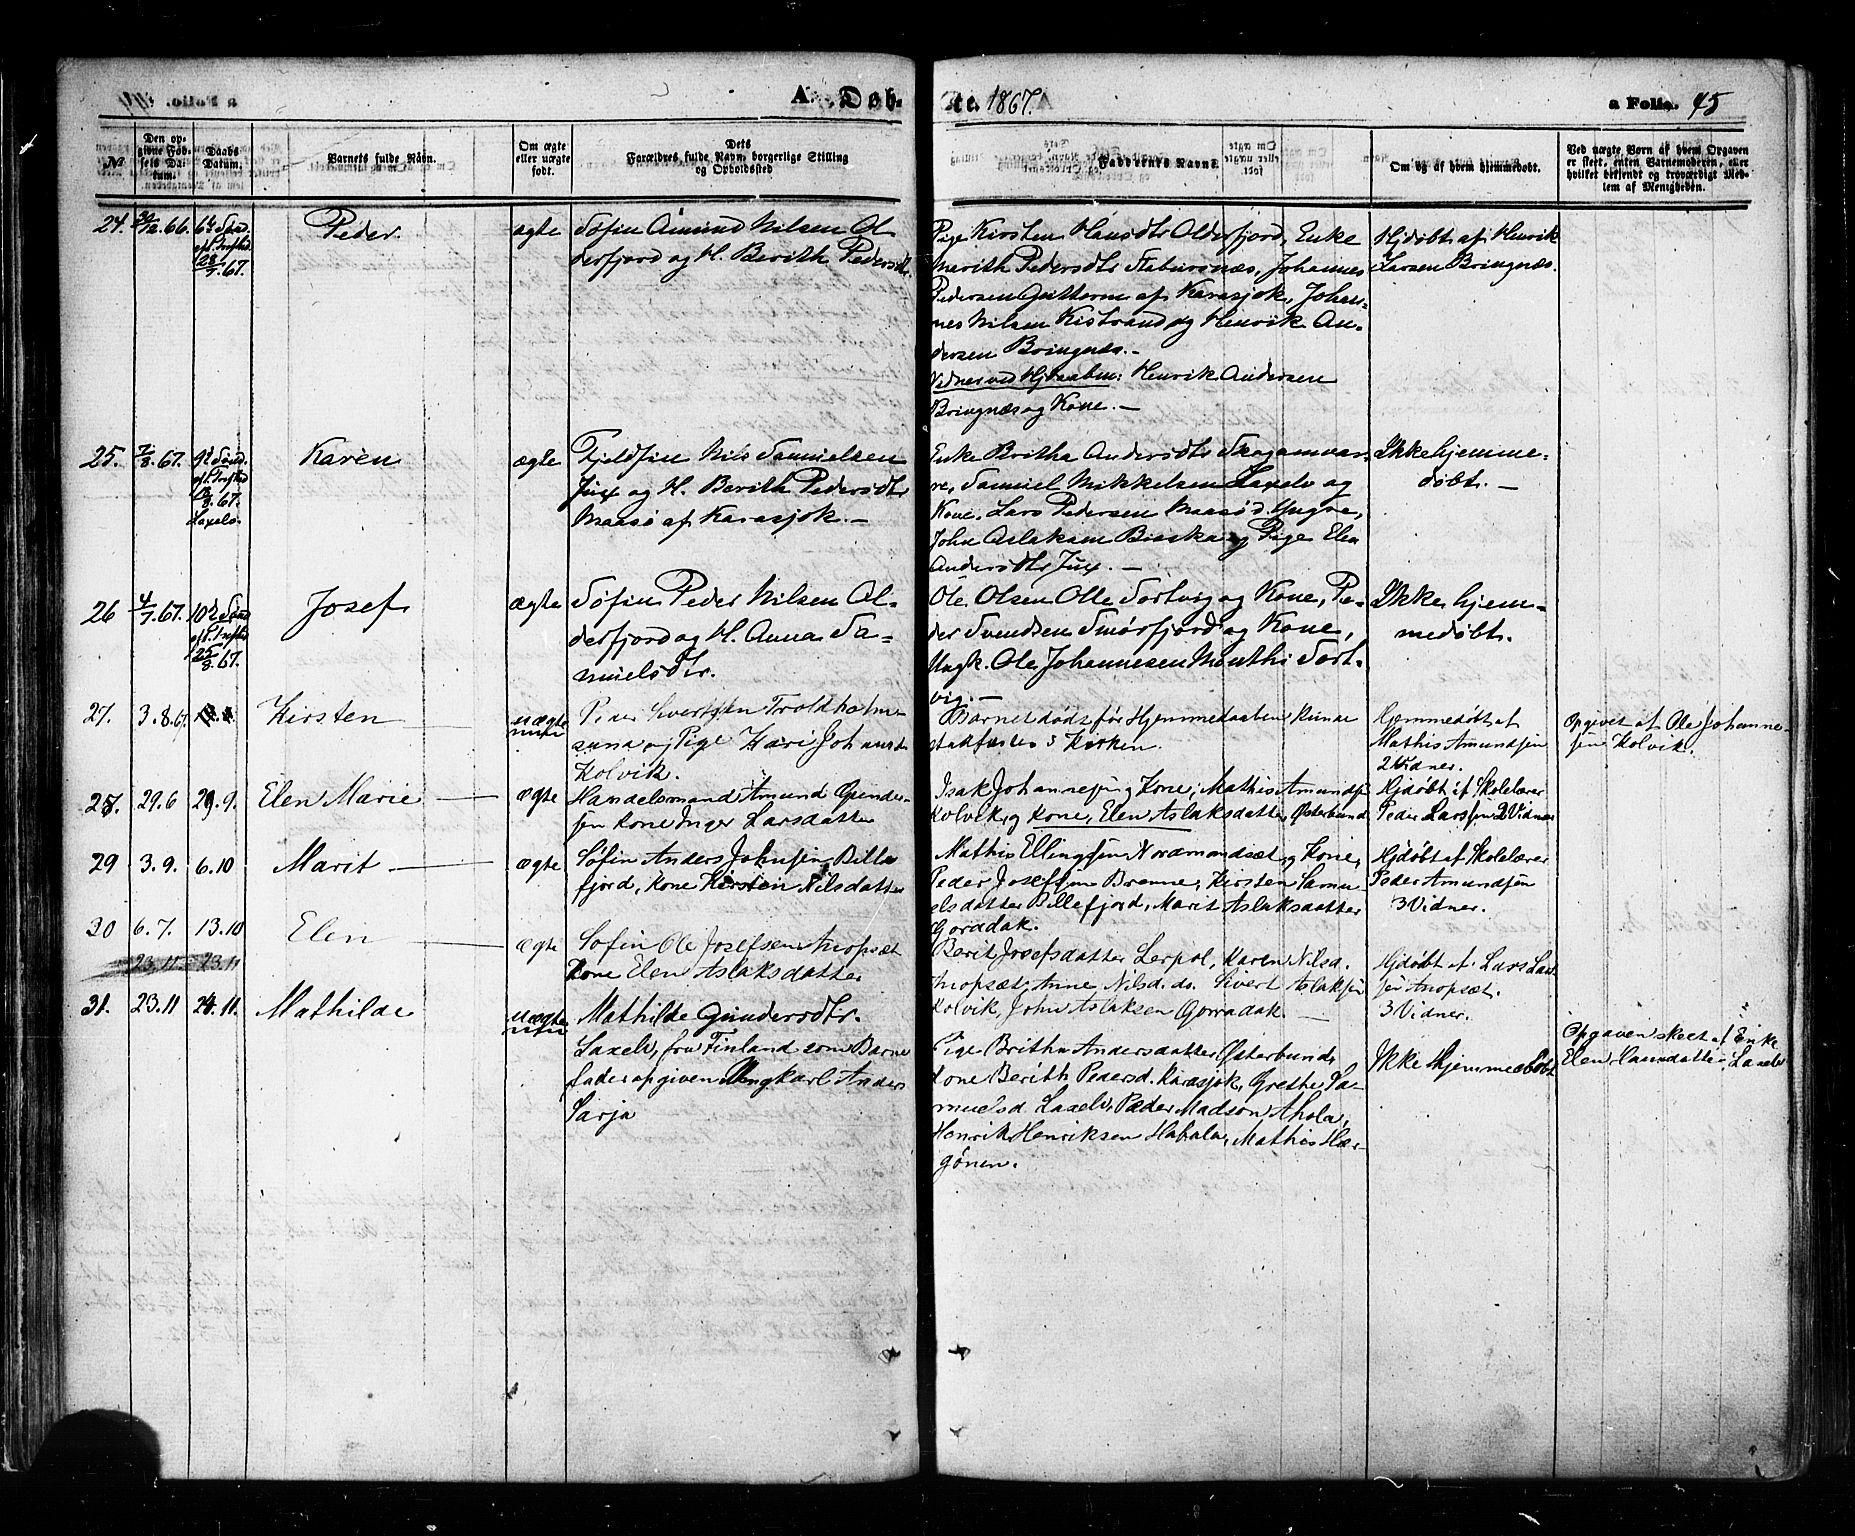 A. Døb-
te. 1867.
a Folio. 45
№
Den opgivne Fødsels Datum.
Daabs Datum.
Barnets fulde Nåvn.
Om ægte eller uægte født.
Dets Forældres fulde Navn, borgerlige Stilling og Opholdssted
Faddernes Navne.
Om og af hvem hjemmedøbt.
Ved uægte Børn af hvem Opgaven er skeet, enten Barnemoderen, eller hvilket bekjendt og troværdigt Medlem af Menigheden.
24. 30/12 66. 6te Sønd.
eft. Trefold.
28/7 67.
Peder
ægte
Søfin Amund Nilsen Ol-
derfjord og H. Berith Pedersdtr.
Pige Kirsten Hansdtr Olderfjord, Enke
Merith Pedersdtr Stabursnæs, Johannes
Pedersen Guttorm af Karasjok, Johan-
nes Nilsen Kistrand og Henrik An-
dersen Bringnæs.-
Vidner ved Hjdaaben: Henrik Andersen
Bringnæs og Kone.-
Hjdøbt af Henrik
Larsen Bringnæs.
25. 7/3. 67. 9de Sønd.
eft. Trefold
18/8. 67.
Laxelv.
Karen
ægte
Fjeldfin Nils Samuelsen
Jux og H. Berith Pedersdtr
Maasø af Karasjok.-
Enke Britha Andersdtr Skoganvar-
re, Samuel Mikkelsen Laxelv og
Kone, Lars Pedersen Maasø d. Yngre,
John Aslaksen Bieska og Pige Elen
Andersdtr Jux.-
Ikke hjemme-
døbt.-
26 4/7. 67. 10de Sønd
eft. Trefold
25/8. 67.
Josef
ægte
Søfin Peder Nilsen Ol-
derfjord og H. Anna Sa-
muelsdtr.
Ole Olsen Olle Sortvig og Kone, Pe-
der Svendsen Smørfjord og Kone,
Ungk. Ole Johannesen Monthi Sort-
vig.-
Ikke hjem-
medøbt.
27. 3. 8. 67.
Kirsten
uægte
Peder Sivertsen Troldholm-
sund og Pige Kari Johansd.
Kolvik.
Barnet døde før Hjemmedaaben kunne
stadfæstes i Kirken.
Hjemmedøbt af
Mathis Amundsen
2 Vidner.
Opgivet af Ole Johanne-
sen Kolvik.
28. 29.6 29.9.
Elen Marie
ægte
Handelsmand Amund Gunder-
sen Kone Inger Larsdatter
Isak Johannesen g Kone, Mathis Amundsen
Kolvik, g Kone, Elen Aslaksdatter Østerbund
Hjdøbt af Skolelærer
Peder Larssen 2 Vidner
29 3.9. 6.10
Marit
ægte
Søfin Anders Johnsen Bille
fjord, Kone Kirsten Nilsdatter
Mathis Ellingsen Nordmandsæt og Kone,
Peder Josefsen Brenne, Kirsten Samu
elsdatter Billefjord, Marit Aslaksdatter
Goradak.
Hjdøbt af Skolelærer
Peder Amundsen
3 Vidner.
30 6.7. 13.10
23.11. 23.11
Elen
ægte
Søfin Ole Josefsen Anopset
Kone Elen Aslaksdatter
Berit Josefsdatter Lerpol, Karen Nilsd.
Anopsæt, Anne Nilsd. ds. Sivert Aslaksen
Kolvik, John Aslaksen Gorradak.
Hjdøbt af Lars Lar
sen Anopsæt.
3 Vidner.
31. 23.11 24.11.
Mathilde
uægte
Mathilde Gundersdtr.
Laxelv, fra Finland som Barne
fader opgiven Ungkarl Anders
Sarja
Pige Britha Andersdatter Østerbund,
Kone Berith Pedersd. Karasjok, Grethe Sa-
muelsd Laxelv, Peder Madson Ahola,
Henrik Henriksen Habala, Mathis Hær-
gönen.
Ikke Hjemmedøbt
Opgaven skeet af Enke
Elen Hansdatter, Laxelv